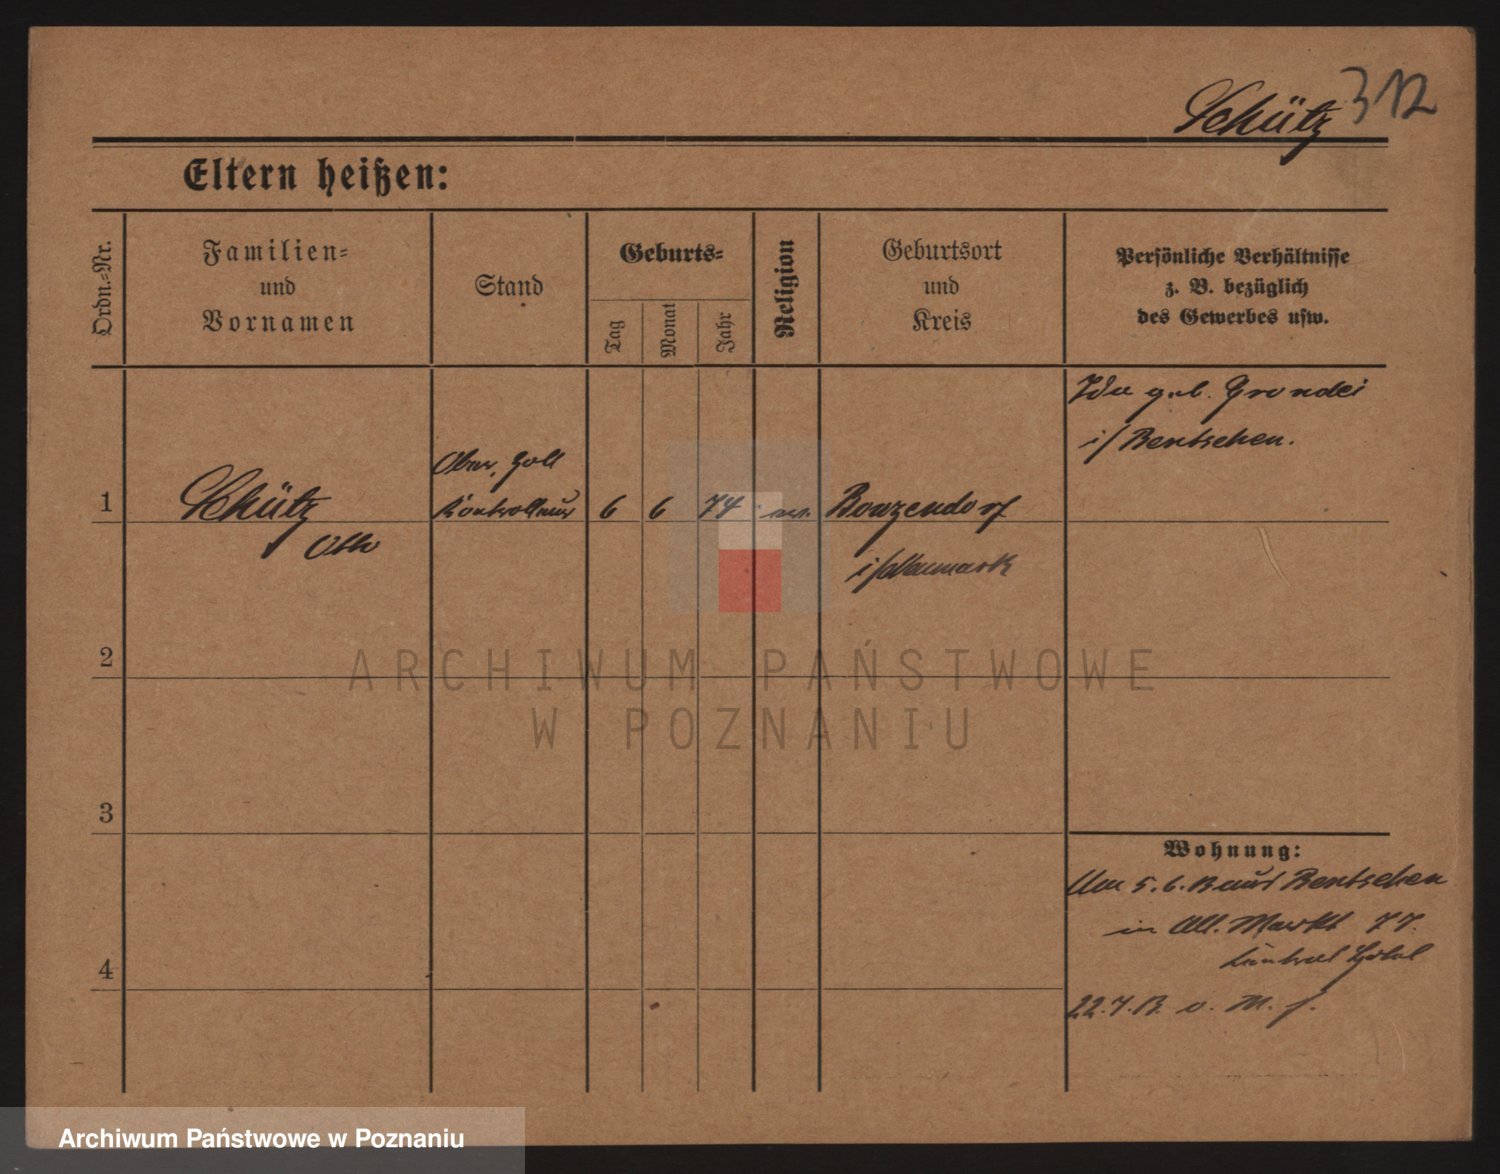 Schütz 312
Eltern heißen:
Ordn.-Nr.
Familien-
und
Vornamen
Stand
Geburts-
Tag
Monat
Jahr
Religion
Geburtsort
und
Kreis
Persönliche Verhältnisse
z. B. bezüglich
des Gewerbes usw.
Ida geb.
i/ Bentschen.
1
Schütz
Otto
Ober. Zoll
Kontrolleur
6
6
74
Neumark
2
3
4
Wohnung:
5. 6. 13 aus Bentschen
in Alt. Markt 77.
Hotel
22. 7. 13. v. M. f.
ARCHIWUM PAŃSTWOWE
W POZNANIU
Archiwum Państwowe w Poznaniu